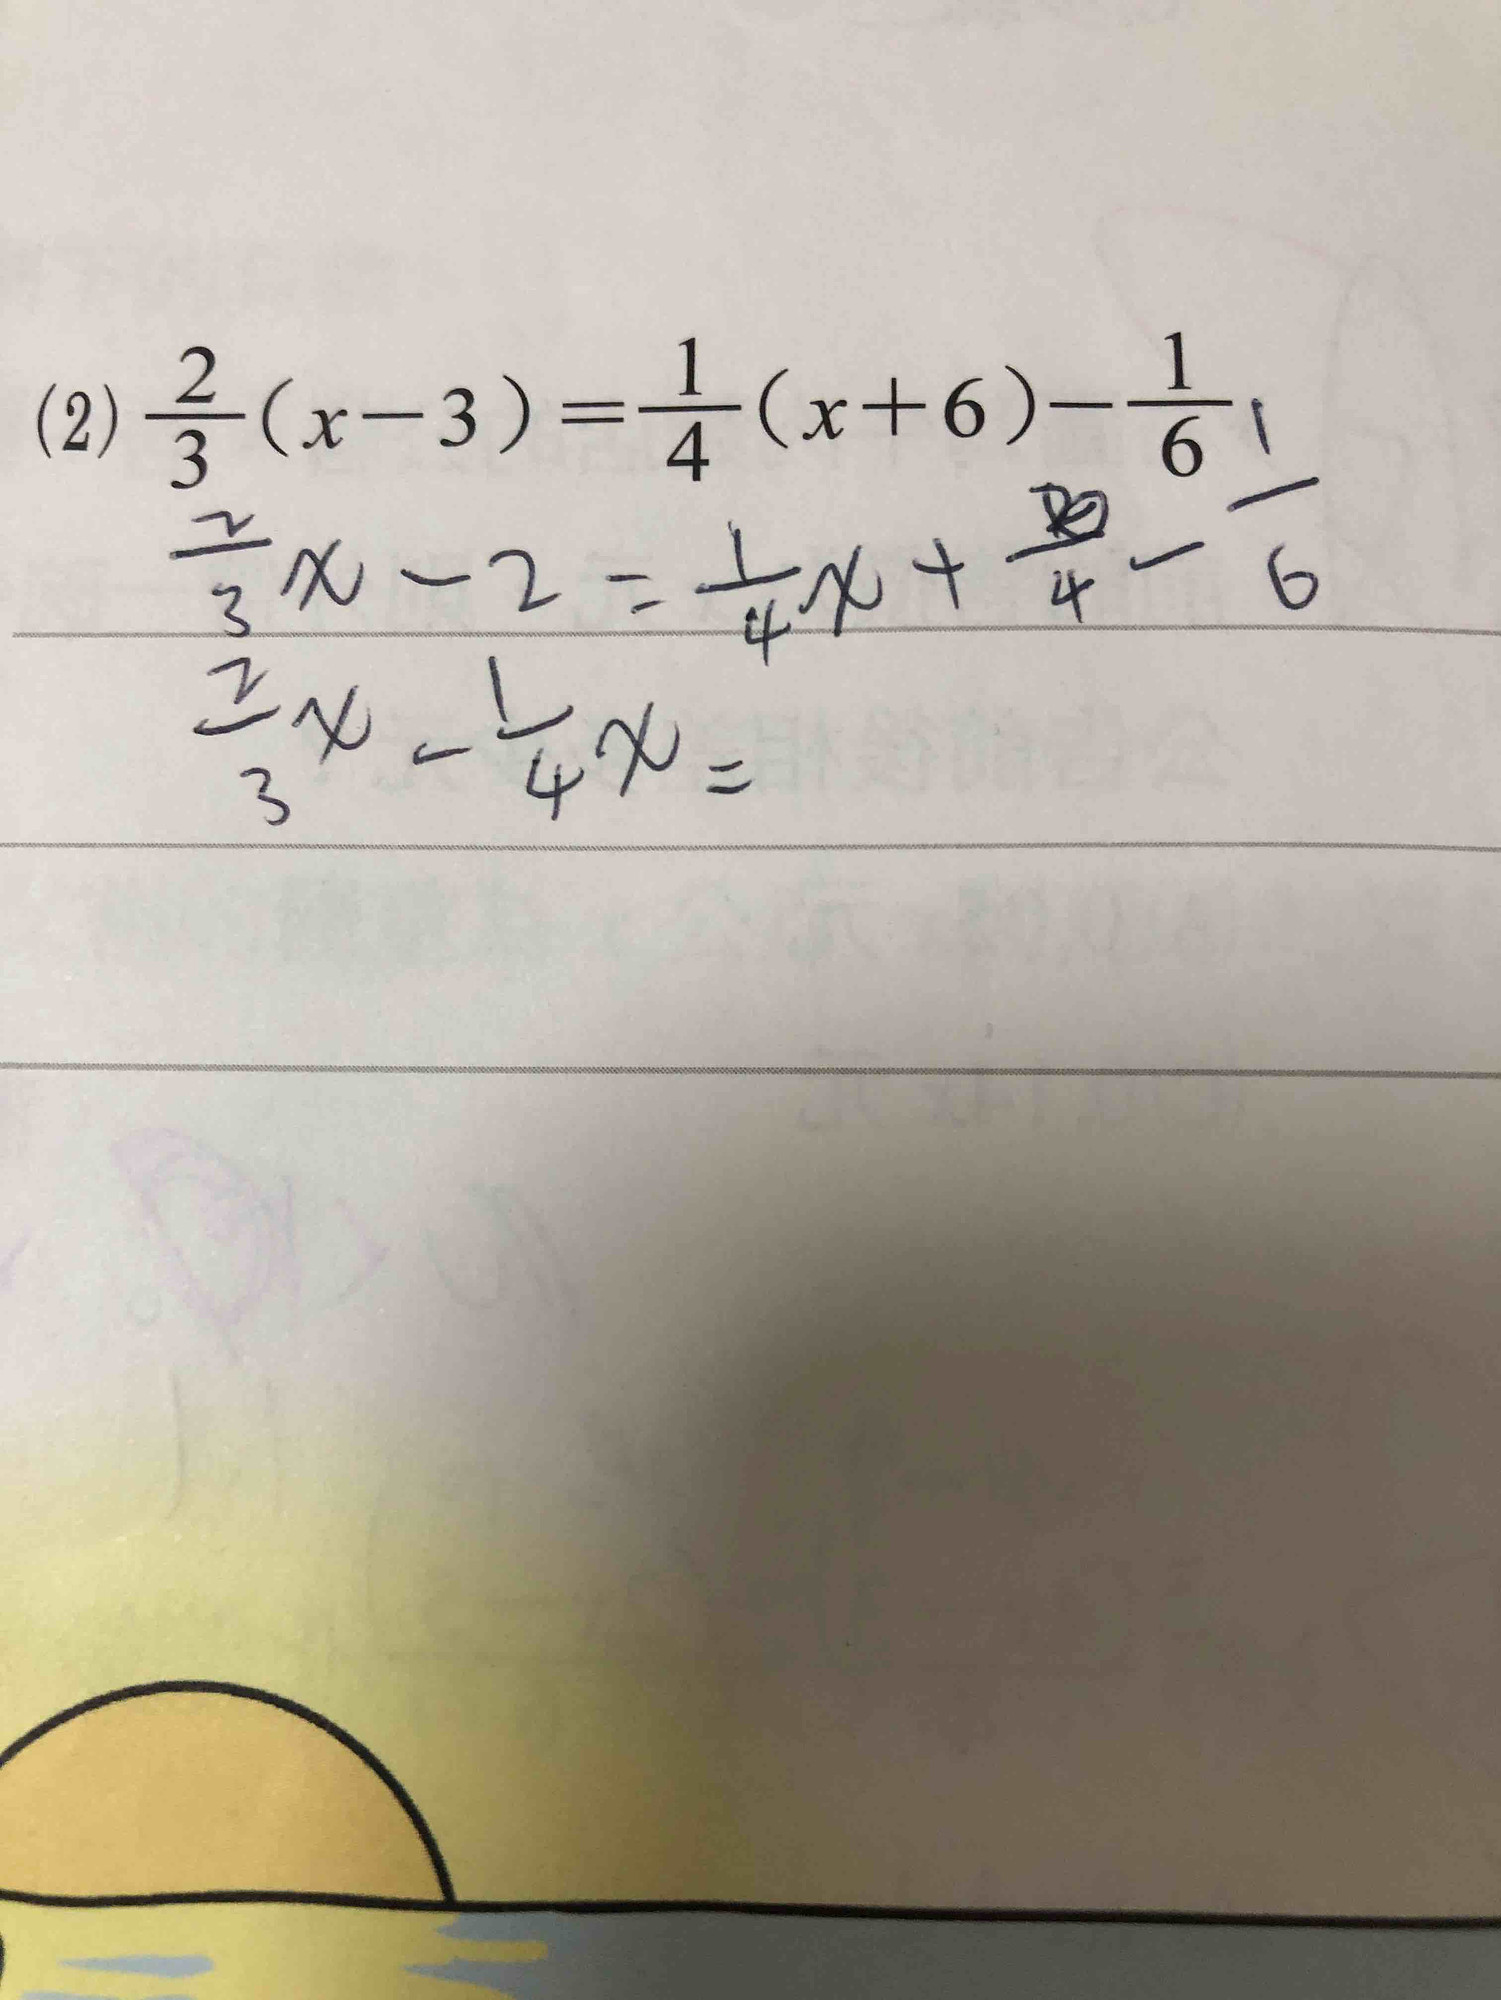 (2) 2/3 (x-3)=1/4 (x+6)-1/6
2/3 x - 2 = 1/4 x + /4 - 1/6
2/3 x - 1/4 x =